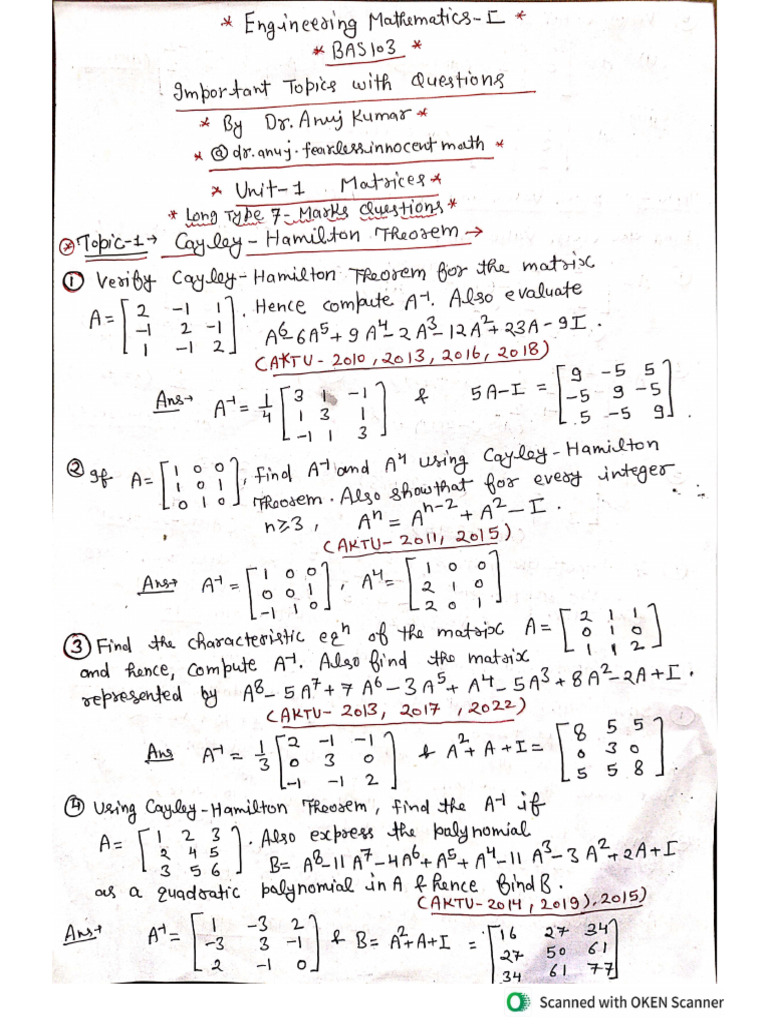 * Engineering Mathematics-I *
* BAS103 *
Important Topics with Questions
* By Dr. Anuj Kumar *
* @dr.anuj.fearlessinnocentmath *
* Unit-1 Matrices *
* Long Type 7-Marks Questions *
* Topic-1→ Cayley-Hamilton Theorem →
① Verify Cayley-Hamilton Theorem for the matrix
A = [2 -1 1; -1 2 -1; 1 -1 2]. Hence compute A⁻¹. Also evaluate
A⁶-6A⁵+9A⁴-2A³-12A²+23A-9I.
(AKTU-2010, 2013, 2016, 2018)
Ans→ A⁻¹ = 1/4 [3 1 -1; 1 3 1; -1 1 3] & 5A-I = [9 -5 5; -5 9 -5; 5 -5 9].
② If A = [1 0 0; 1 0 1; 0 1 0], find A⁻¹ and A⁴ using Cayley-Hamilton
Theorem. Also show that for every integer
n≥3, Aⁿ = Aⁿ⁻² + A² - I.
(AKTU-2011, 2015)
Ans→ A⁻¹ = [1 0 0; 0 0 1; -1 1 0], A⁴ = [1 0 0; 2 1 0; 2 0 1]
③ Find the characteristic eqⁿ of the matrix A = [2 1 1; 0 1 0; 1 1 2]
and hence, compute A⁻¹. Also find the matrix
represented by A⁸-5A⁷+7A⁶-3A⁵+A⁴-5A³+8A²-2A+I.
(AKTU-2013, 2017, 2022)
Ans A⁻¹ = 1/3 [2 -1 -1; 0 3 0; -1 -1 2] & A²+A+I = [8 5 5; 0 3 0; 5 5 8].
④ Using Cayley-Hamilton Theorem, find the A⁻¹ if
A = [1 2 3; 2 4 5; 3 5 6]. Also express the polynomial
B = A⁸-11A⁷-4A⁶+A⁵+A⁴-11A³-3A²+2A+I
as a quadratic polynomial in A & hence Bind B.
(AKTU-2014, 2019), 2015)
Ans→ A⁻¹ = [1 -3 2; -3 3 -1; 2 -1 0] & B = A²+A+I = [16 27 34; 27 50 61; 34 61 77]
Scanned with OKEN Scanner